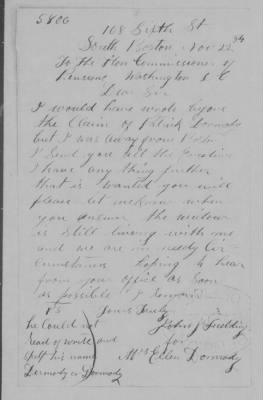 5806
168 Sixth St
South Boston Nov 22 84
To the Hon Commissioner of
Pensions Washington D C
Dear Sir
I would have wrote before
the Claim of Patrick Dormody
but I was away from
I Send you all the
I have any thing further
that is wanted you will
please let me know when
you answer the widow
is still living with me
and we are in needy Cir
cumstances hoping to hear
from your office as soon
as possible I remain
PS Yours Truly
he Could not John J Fielding
read or write and for
spelt his name Mrs Ellen Dormody
Dermody or Dormody